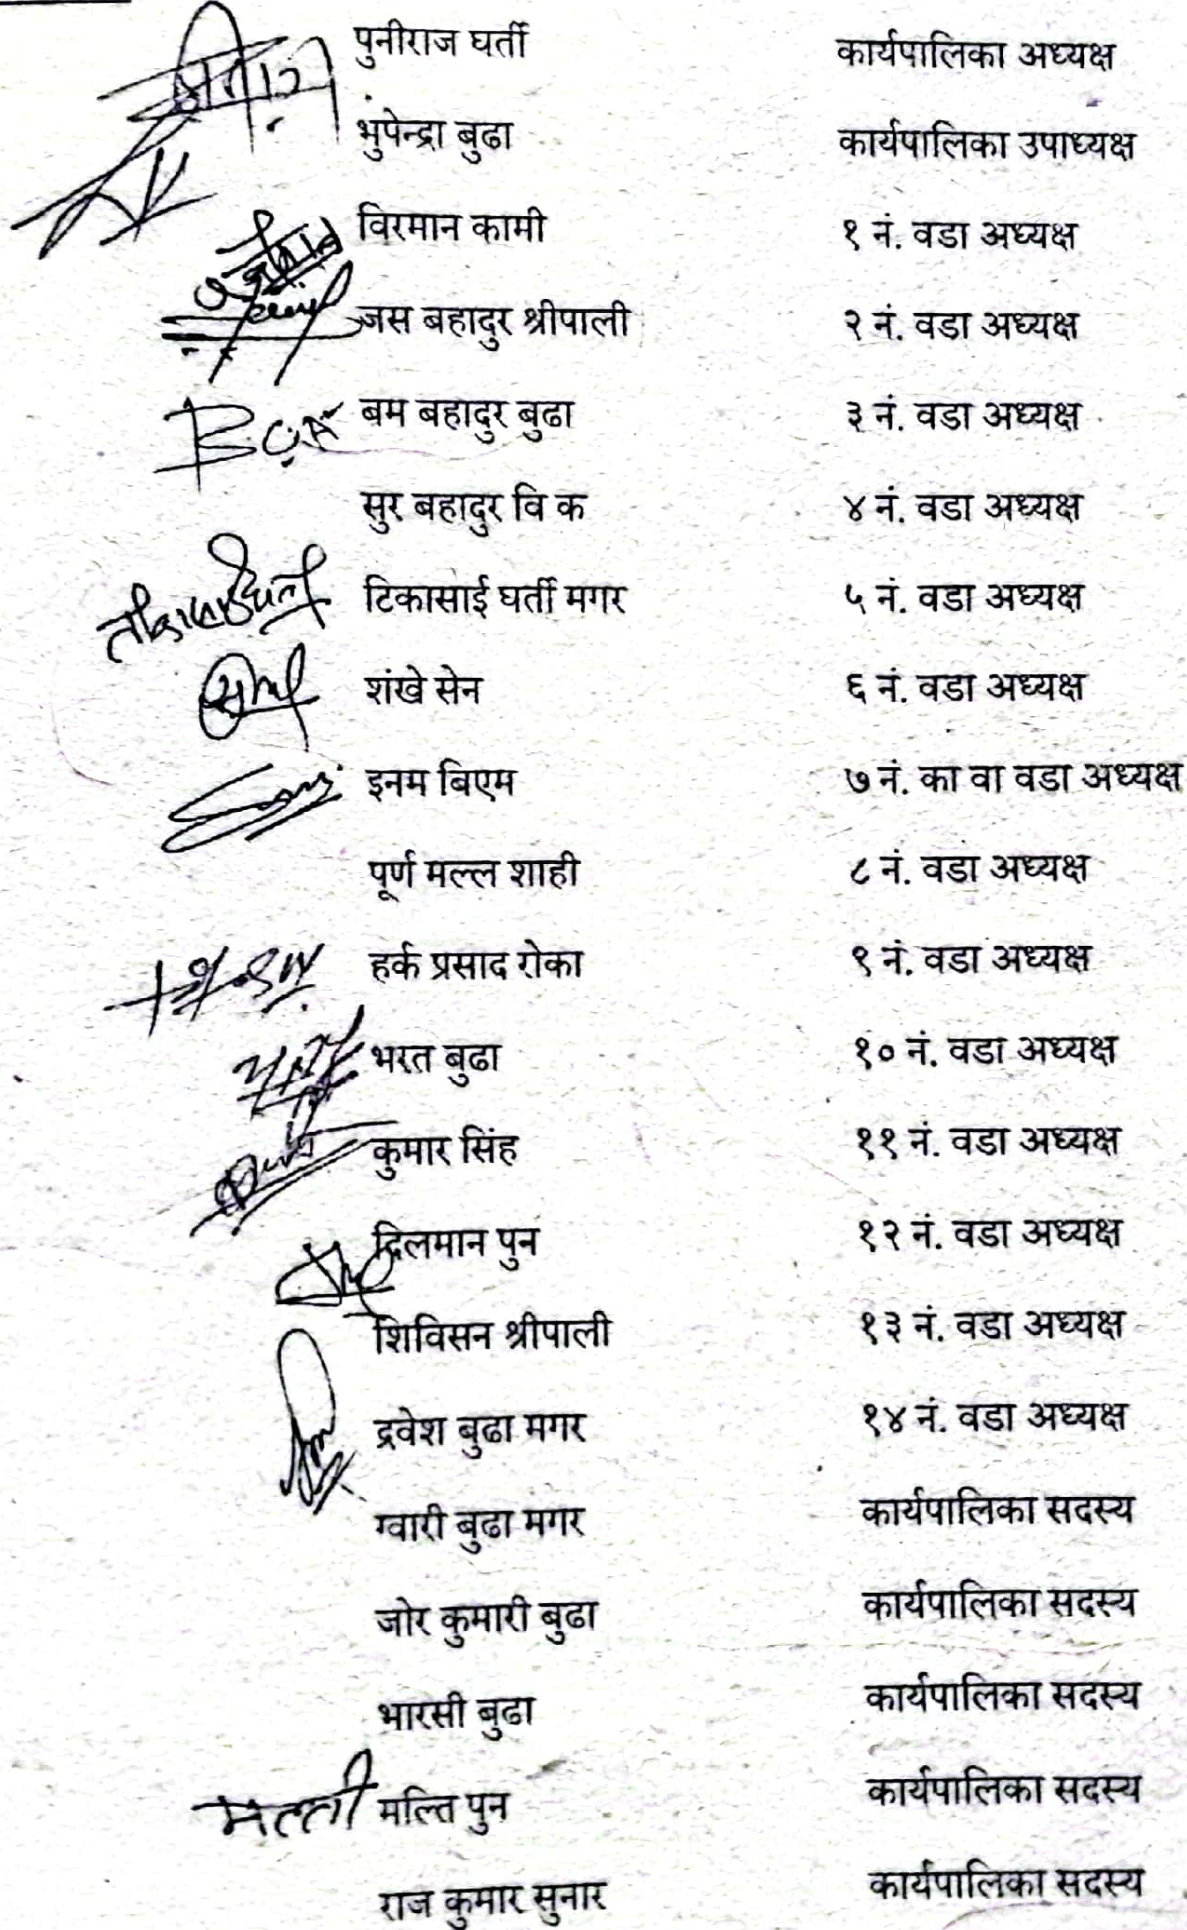 पुनीराज घर्ती कार्यपालिका अध्यक्ष
भुपेन्द्रा बुढा कार्यपालिका उपाध्यक्ष
विरमान कामी १ नं. वडा अध्यक्ष
जस बहादुर श्रीपाली २ नं. वडा अध्यक्ष
बम बहादुर बुढा ३ नं. वडा अध्यक्ष
सुर बहादुर वि क ४ नं. वडा अध्यक्ष
टिकासाई घर्ती मगर ५ नं. वडा अध्यक्ष
शंखे सेन ६ नं. वडा अध्यक्ष
इनम बिएम ७ नं. का वा वडा अध्यक्ष
पूर्ण मल्ल शाही ८ नं. वडा अध्यक्ष
हर्क प्रसाद रोका ९ नं. वडा अध्यक्ष
भरत बुढा १० नं. वडा अध्यक्ष
कुमार सिंह ११ नं. वडा अध्यक्ष
दिलमान पुन १२ नं. वडा अध्यक्ष
शिविसन श्रीपाली १३ नं. वडा अध्यक्ष
द्रवेश बुढा मगर १४ नं. वडा अध्यक्ष
ग्वारी बुढा मगर कार्यपालिका सदस्य
जोर कुमारी बुढा कार्यपालिका सदस्य
भारसी बुढा कार्यपालिका सदस्य
मल्ति पुन कार्यपालिका सदस्य
राज कुमार सुनार कार्यपालिका सदस्य